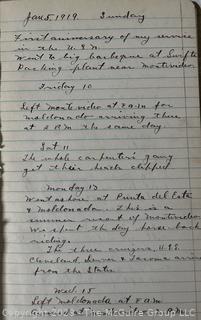 Jan 5, 1919. Sunday
First anniversary of my service
in the U.S.N.
Went to big barbeque at Swifts
Packing plant near Montevideo
Friday 10
Left Montevideo at 7 a.m for
maldonado arriving there
at 2 P.M the same day.
Sat 11
The whole carpenters gang
get their heads clipped
Monday 13
Went ashore at Punta del Este
& Maldonado. This is a
summer resort of Montevideo
We spent the day horse back
riding.
The three cruisers, U.S.S.
Cleveland, Denver & Tacoma arrive
from the States
Wed. 15
Left maldonado at 8 a.m
Copyright 2023 - The McGuire Group LLC